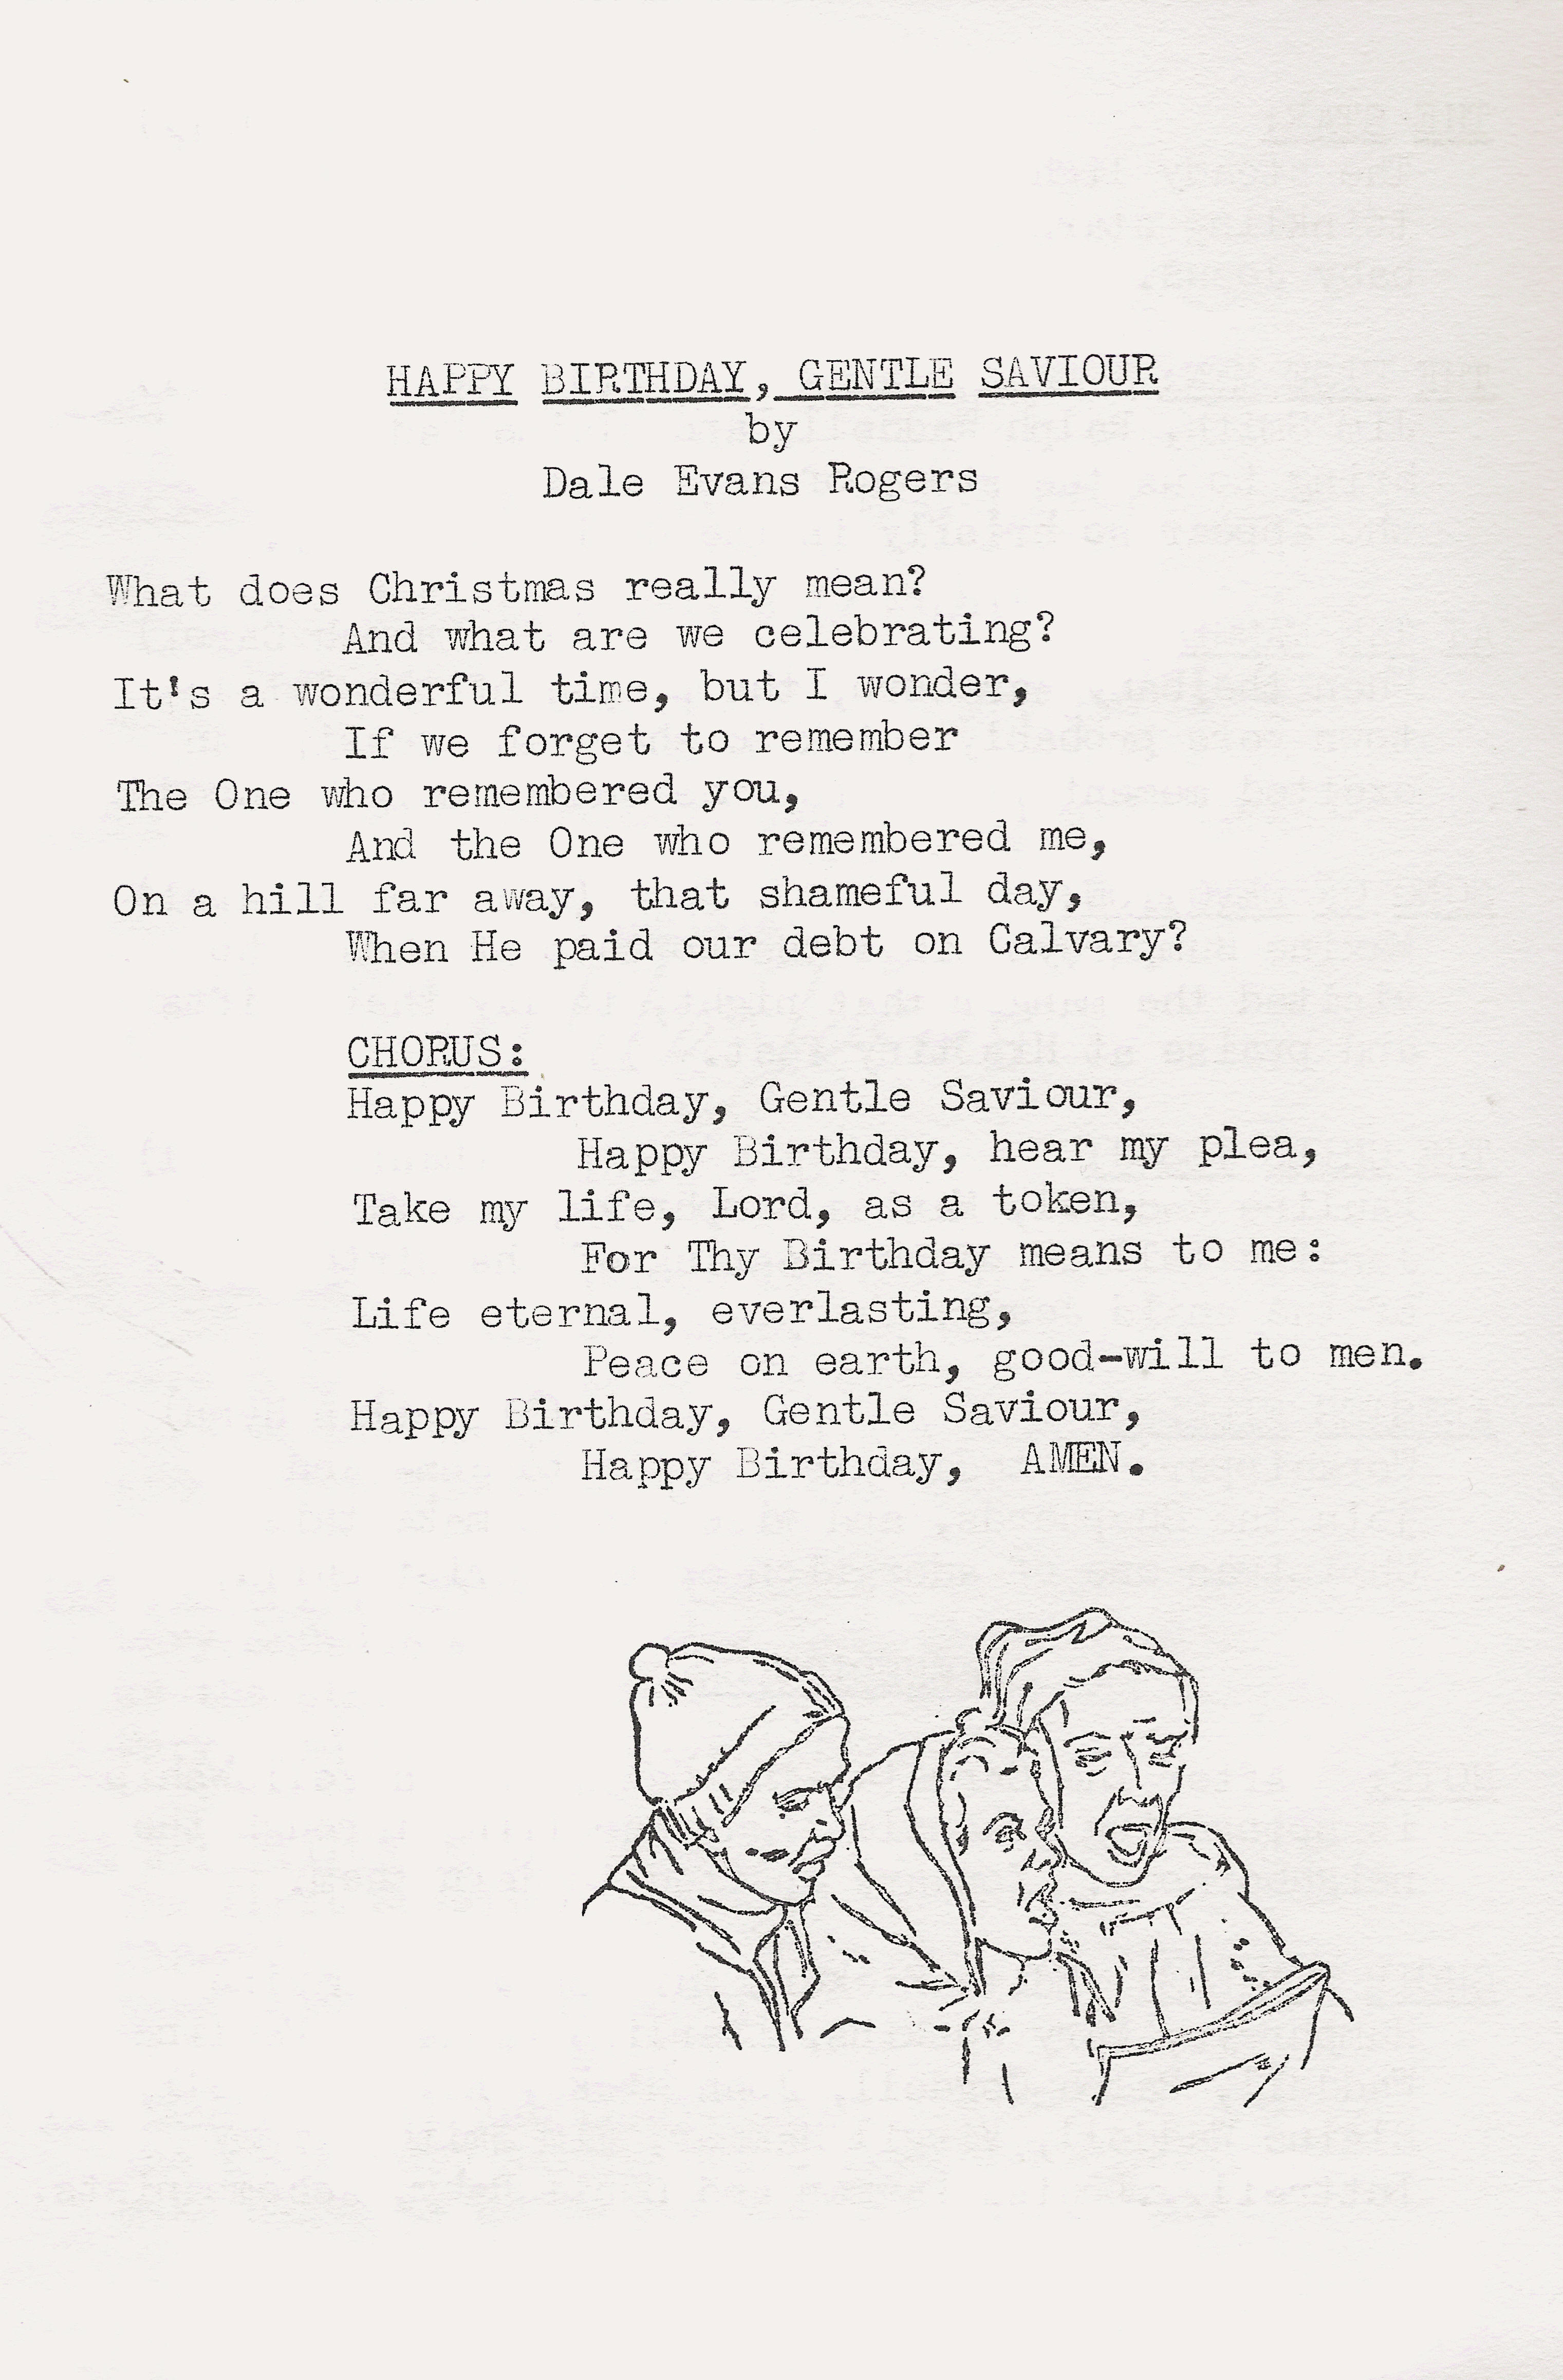 HAPPY BIRTHDAY, GENTLE SAVIOUR
by
Dale Evans Rogers
What does Christmas really mean?
And what are we celebrating?
It's a wonderful time, but I wonder,
If we forget to remember
The One who remembered you,
And the One who remembered me,
On a hill far away, that shameful day,
When He paid our debt on Calvary?
CHORUS:
Happy Birthday, Gentle Saviour,
Happy Birthday, hear my plea,
Take my life, Lord, as a token,
For Thy Birthday means to me:
Life eternal, everlasting,
Peace on earth, good-will to men.
Happy Birthday, Gentle Saviour,
Happy Birthday, AMEN.